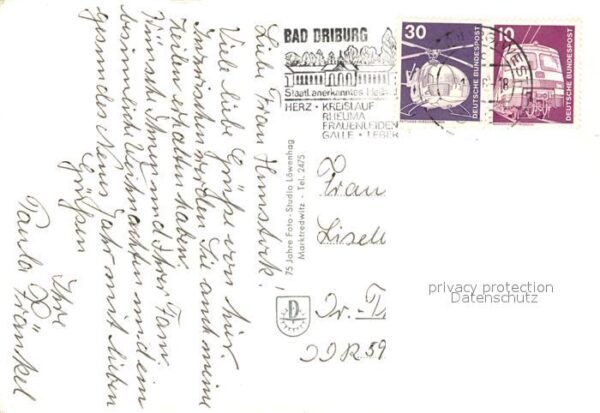 Liebe Frau Hunstock!
Viel liebe Grüße von hier.
Inzwischen werden Sie auch meine
Zeilen erhalten haben.
Wünsche Ihnen und Ihrer Fam.
besonders gute Weihnachten und ein
gesundes Neues Jahr mit lieben
Grüßen
Ihre
Paula Fränkel
BAD DRIBURG
Staatl. anerkanntes Heilbad
HERZ · KREISLAUF
RHEUMA
FRAUENLEIDEN
GALLE · LEBER
30
DEUTSCHE BUNDESPOST
10
DEUTSCHE BUNDESPOST
75 Jahre Foto-Studio Löwenhag
Marktredwitz - Tel. 2475
Frau
Lisell
Dr.-
DDR 59
privacy protection
Datenschutz